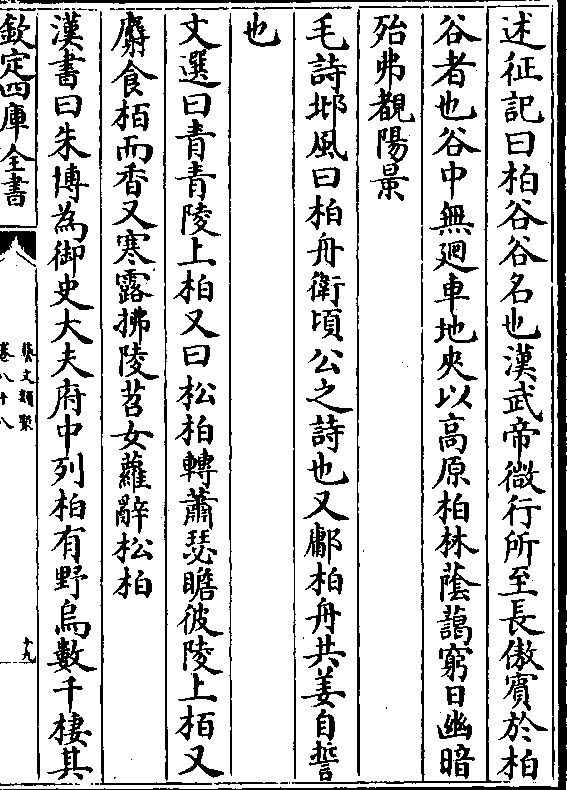 述征記曰柏谷谷名也漢武帝微行所至長傲賓於柏
谷者也谷中無廻車地夾以高原柏林蔭藹窮日幽暗
殆弗覩陽景
毛詩邶風曰柏舟衛頃公之詩也又鄘柏舟共姜自誓
也
文選曰青青陵上柏又曰松柏轉蕭瑟瞻彼陵上栢又
麝食栢而香又寒露拂陵苕女蘿辭松柏
漢書曰朱博為御史大夫府中列柏有野烏數千棲其
欽定四庫全書
藝文類聚
卷八十八
十九